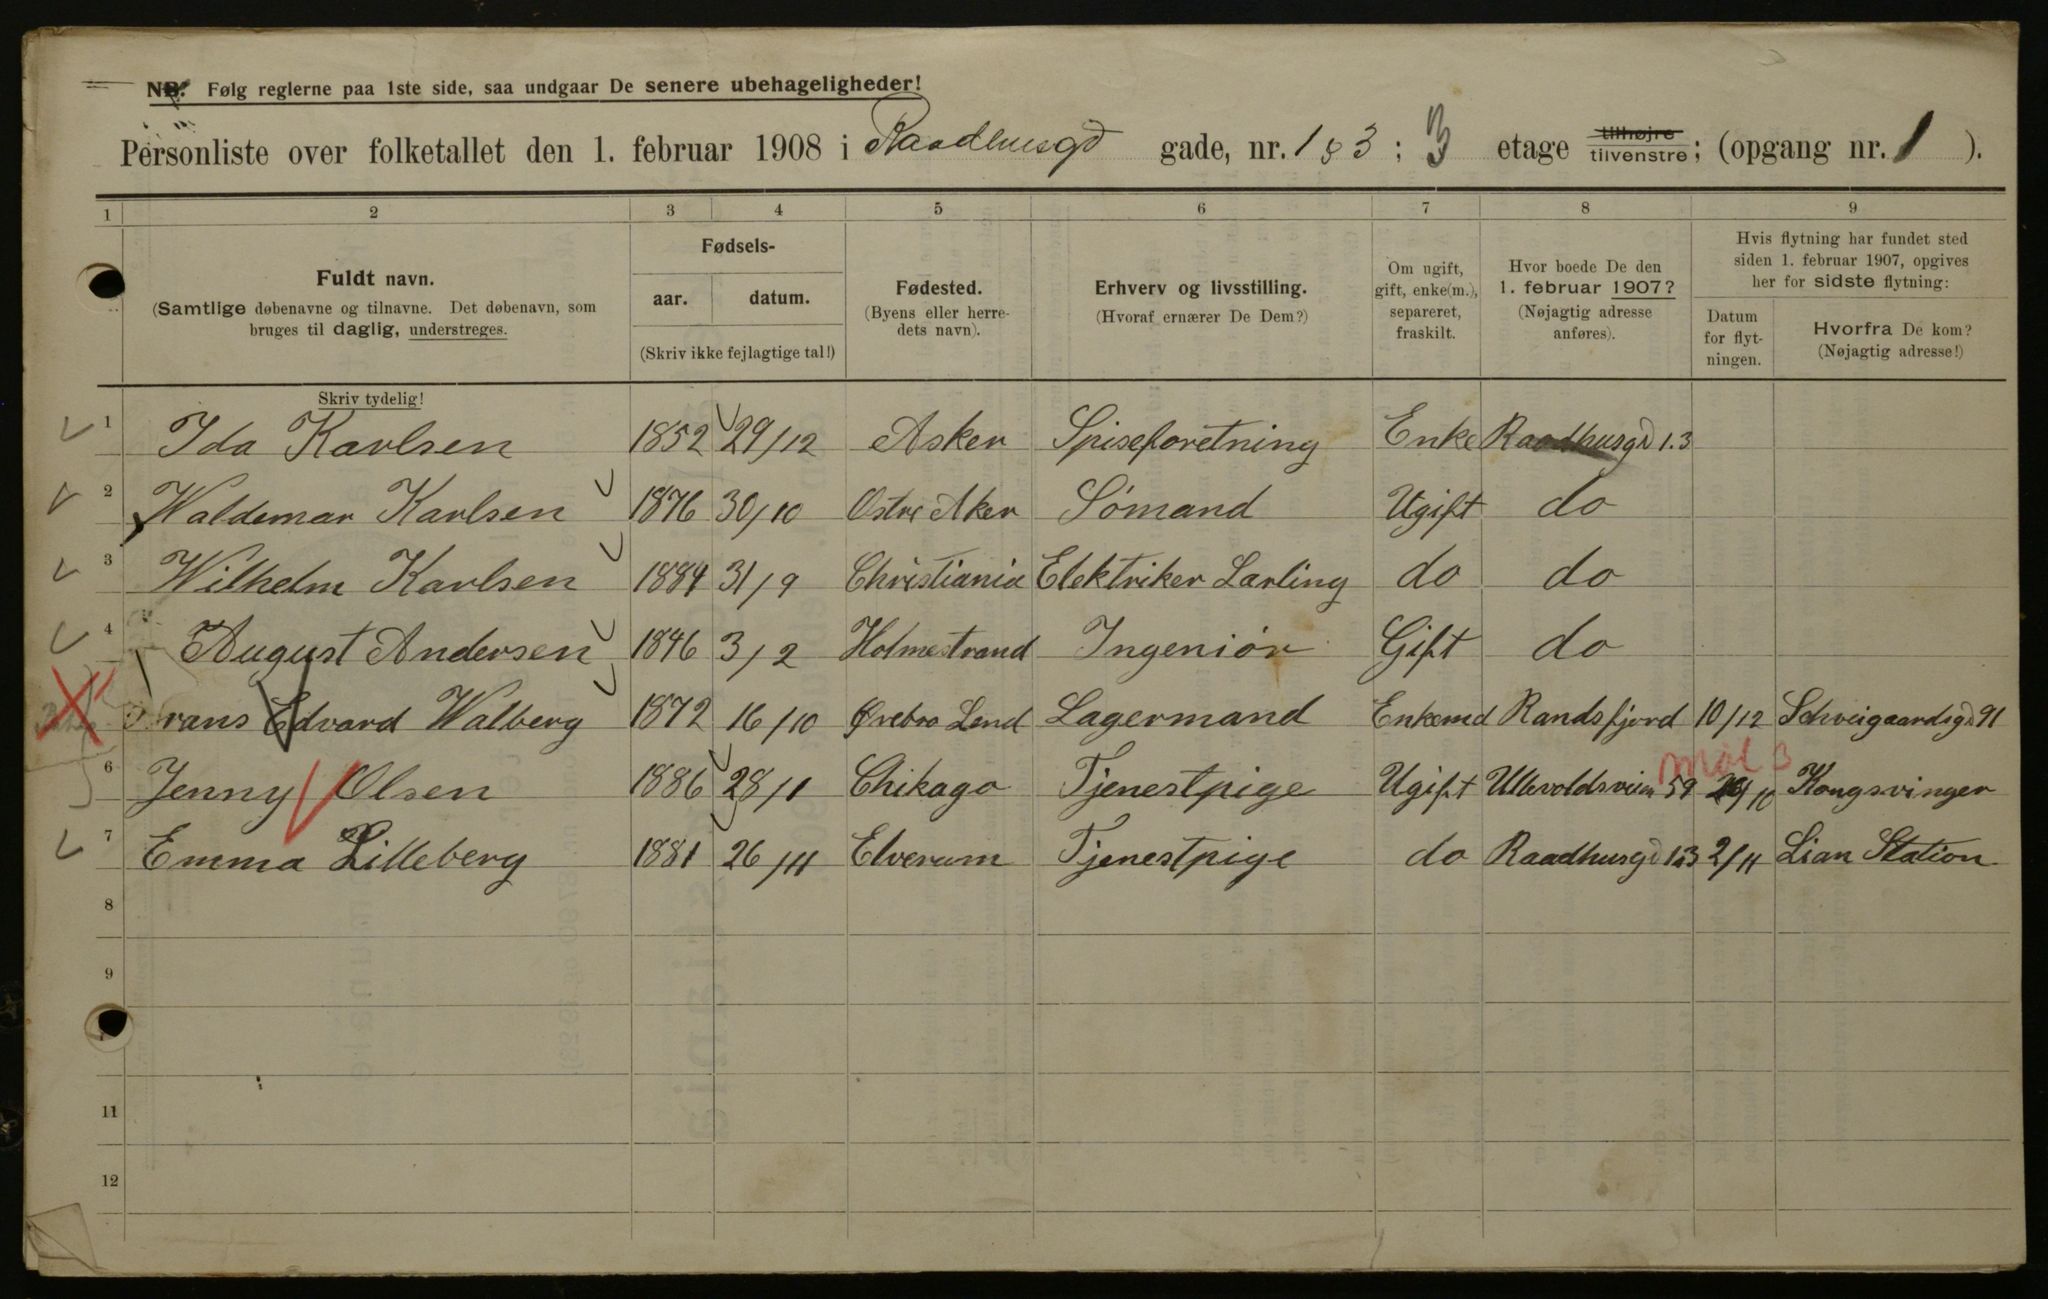 NB. Følg reglerne paa 1ste side, saa undgaar De senere ubehageligheder!
Personliste over folketallet den 1. februar 1908 i Raadhusgd gade, nr. 1 & 3 ; 3 etage tilhøjre tilvenstre ; (opgang nr. 1 ).
1 2 3 4 5 6 7 8 9
Fuldt navn.
(Samtlige døbenavne og tilnavne. Det døbenavn, som
bruges til daglig, understreges.
Fødsels-
aar. datum.
(Skriv ikke fejlagtige tal!)
Fødested.
(Byens eller herre-
dets navn).
Erhverv og livsstilling.
(Hvoraf ernærer De Dem?)
Om ugift,
gift, enke(m.),
separeret,
fraskilt.
Hvor boede De den
1. februar 1907?
(Nøjagtig adresse
anføres).
Hvis flytning har fundet sted
siden 1. februar 1907, opgives
her for sidste flytning:
Datum
for flyt-
ningen.
Hvorfra De kom?
(Nøjagtig adresse!)
Skriv tydelig!
1 Ida Karlsen 1852 29/12 Asker Spiseforetning Enke Raadhusgd 1.3
2 Waldemar Karlsen 1876 30/10 Ostre Aker Sómand Ugift do
3 Wilhelm Karlsen 1884 31/9 Christiania Elektriker Larling do do
4 August Andersen 1846 3/2 Holmestrand Ingeniór Gift do
Frans Edvard Walberg 1872 16/10 Ørebro Lend Lagermand Enkemd Randsfjord 10/12 Schveigaardsgd 91
6 Jenny Olsen 1886 28/1 Chikago Tjenestpige Ugift Ullevoldsveien 59 /10 Kongsvinger
7 Emma Lilleberg 1881 26/11 Elverum Tjenestpige do Raadhusgd 1&3 2/11 Lian Station
8
9
11
12